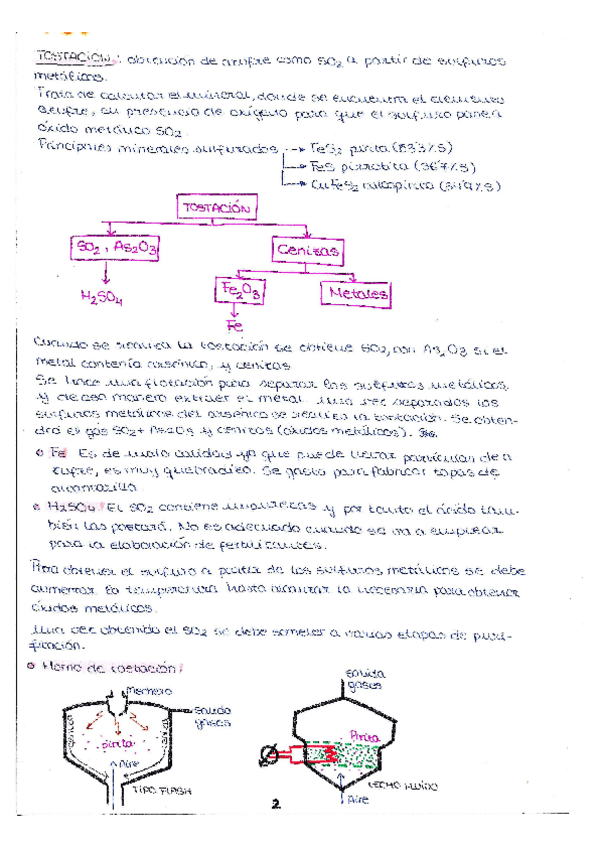 TOSTACIÓN: obtención de azufre como SO2 a partir de sulfuros
metálicos.
Trata de calentar el mineral, donde se encuentra el elemento
azufre, en presencia de oxígeno para que el sulfuro pase a
óxido metálico SO2
Principales minerales sulfurados → FeS2 pirita (53'3%S)
→ FeS pirrotita (36'7%S)
→ CuFeS2 calcopirita (34'9%S)
TOSTACIÓN
SO2, As2O3
Cenizas
H2SO4
Fe2O3
Metales
Fe
Cuando se realiza la tostación se obtiene SO2, con As2O3 si el
metal contenía arsénico, y cenizas
Se hace una flotación para separar los sulfuros metálicos,
y de ese manera extraer el metal. Una vez separados los
sulfuros metálicos del arsénico se realiza la tostación. Se obten-
drá es gas SO2 + As2O3 y cenizas (óxidos metálicos).
Fe Es de mala calidad ya que puede llevar partículas de a
zufre, es muy quebradizo. Se gasta para fabricar tapas de
alcantarilla
H2SO4: El SO2 contiene impurezas y por tanto el ácido tam-
bién las portará. No es adecuado cuando se va a emplear
para la elaboración de fertilizantes.
Para obtener el sulfuro a partir de los sulfuros metálicos se debe
aumentar la temperatura hasta alcanzar la necesaria para obtener
óxidos metálicos.
Una vez obtenido el SO2 se debe someter a varias etapas de puri-
ficación.
Horno de tostación:
Mechero
salida
gases
pirita
Aire
TIPO FLASH
salida
gases
Pirita
LECHO FLUIDO
Aire
2